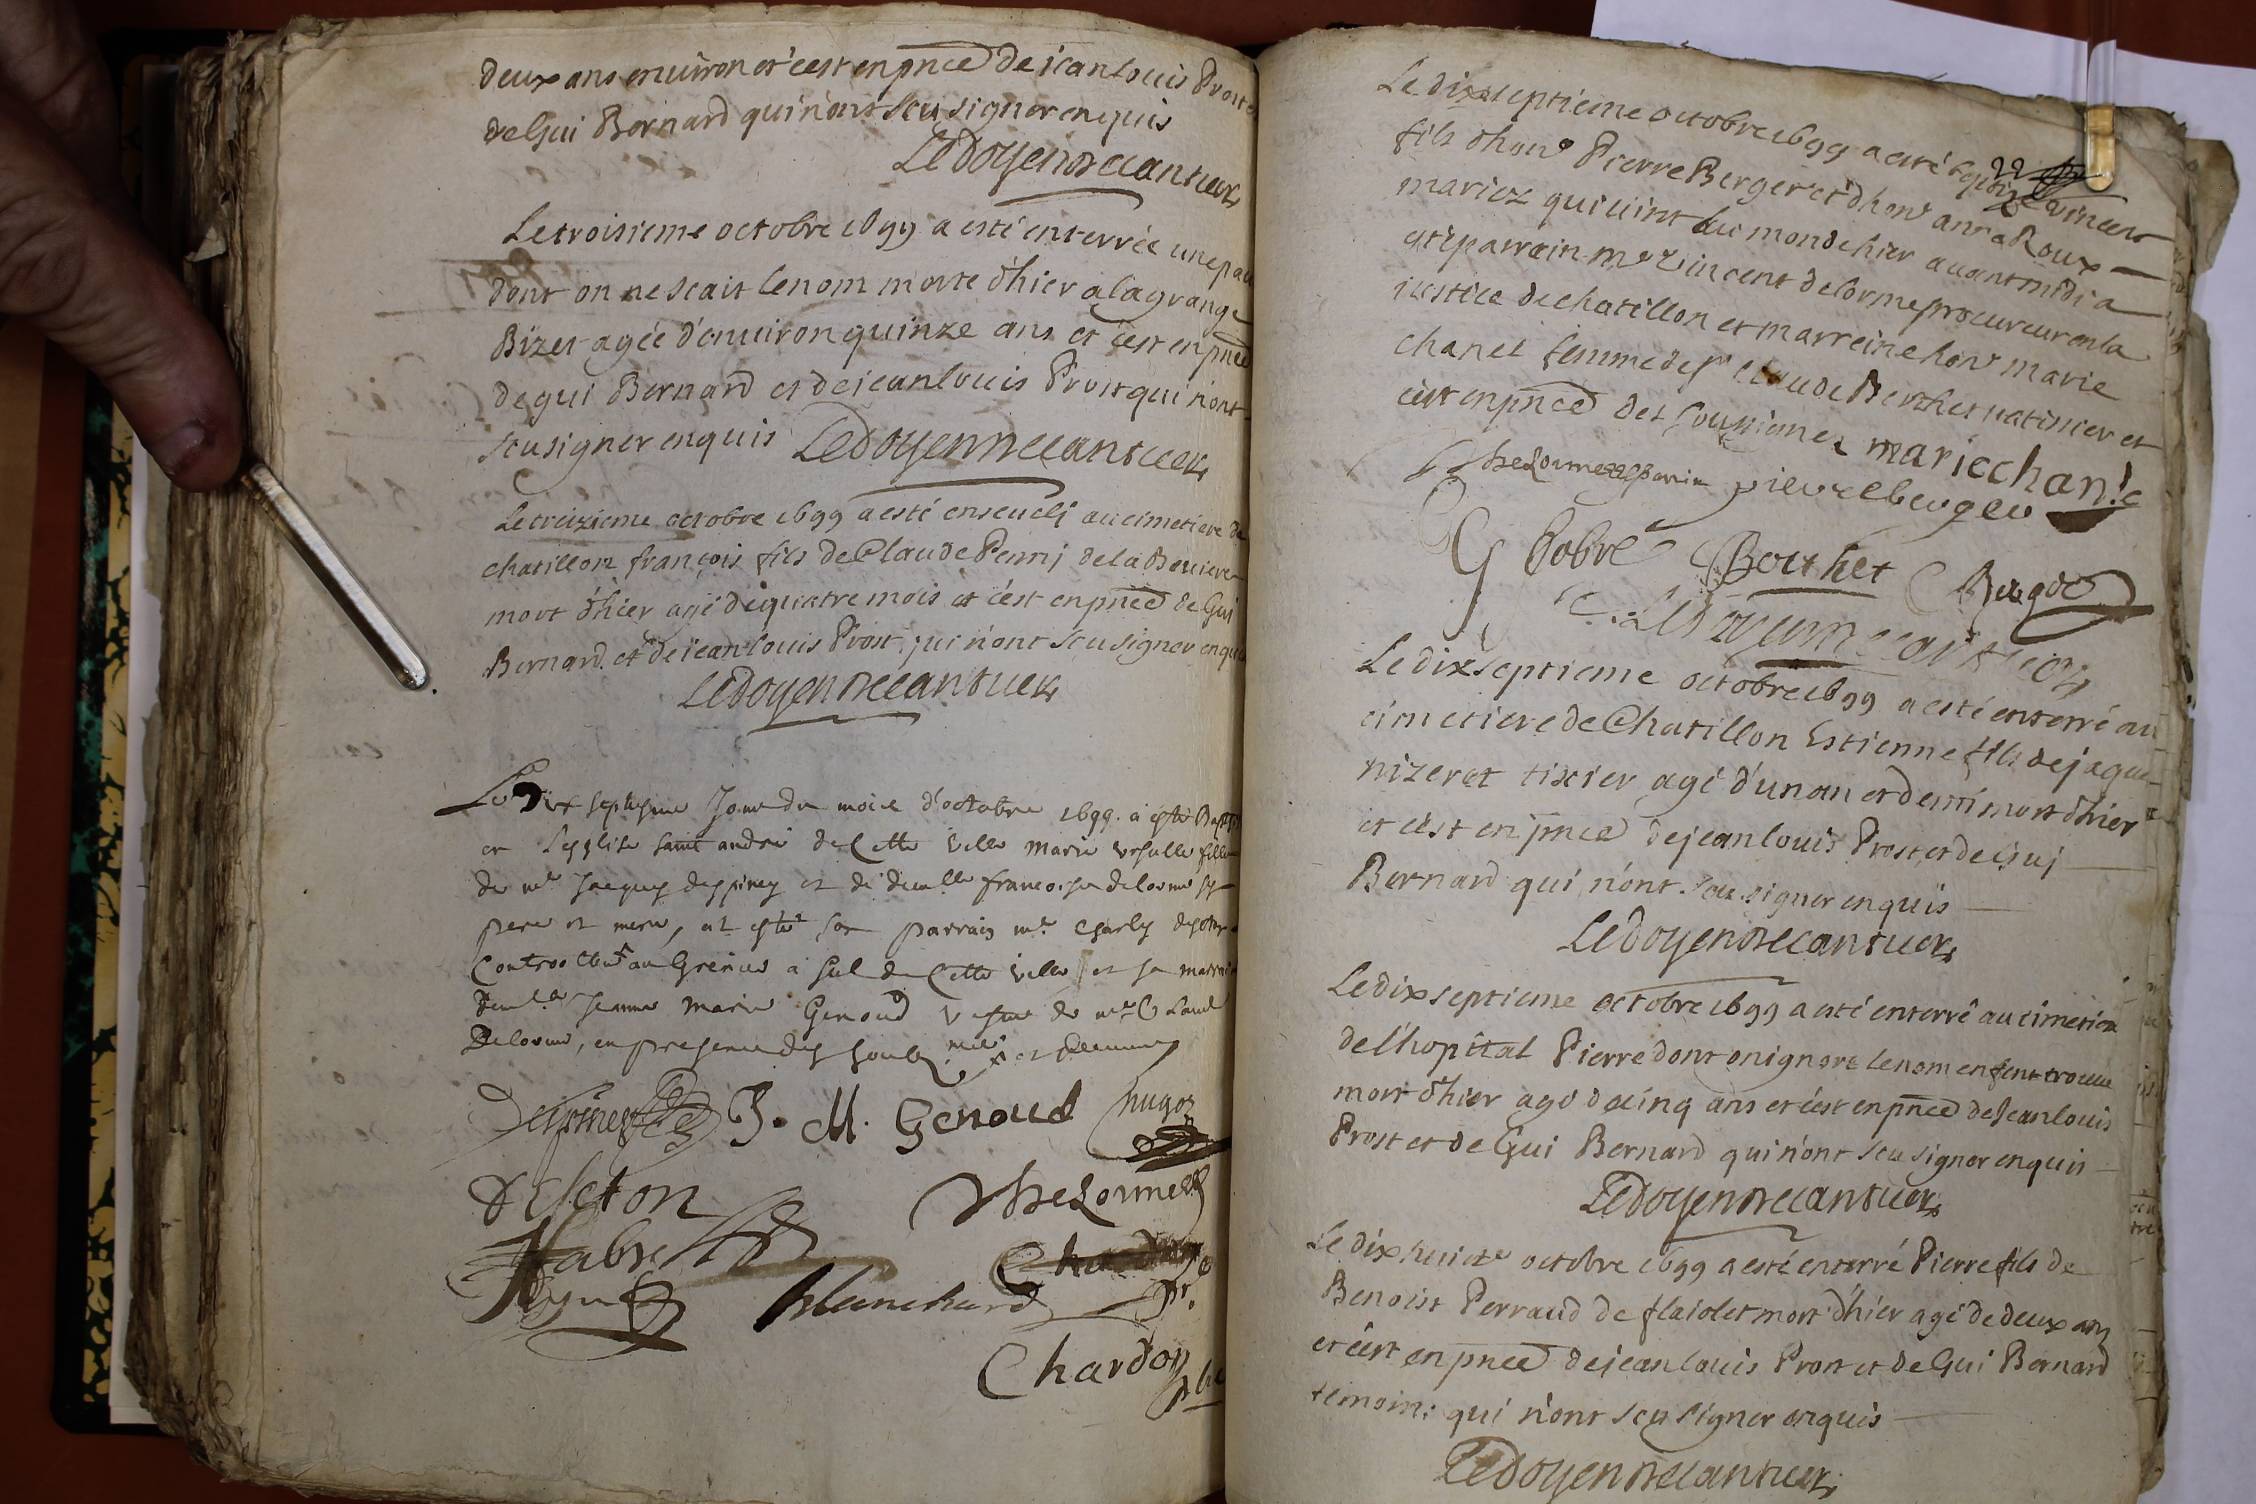 deux ans environ et c'est en pnce de jean louis Prost
de Gui Bernard qui n'ont sceu signer enquis
Ledoyen
Le troisieme octobre 1699 a esté enterrée une
dont on ne scait le nom morte d'hier a la grange
Bizet agée d'environ quinze ans et c'est en pnce
de gui Bernard et de jean louis Prost qui n'ont
sceu signer enquis Ledoyen
Le treizieme octobre 1699 a esté enseueli au cimetiere de
chatillon françois fils de Claude Penni de la Boviere
mort d'hier agé de quatre mois et c'est en pnce de Gui
Bernard et de jean louis Prost qui n'ont sceu signer enquis
Ledoyen
Le Dix septiesme Jour du mois d'octobre 1699. a esté
en Lesglise saint andré de Cette ville Marie Ursulle fille
de mr Jacques despiney et de damlle francoise delorme ses
pere et mere, at esté son parrain mr Charles
Controolleur au Grenier a sel de Cette ville et sa marraine
damlle Jeanne Marie Genoud vefve de mr Claude
Delorme, en presence des
Despiney J. M. Genoud hugoz
Deseton Delorme
fabre
Blanchard
Chardon
Le dix septieme octobre 1699 a esté baptizé vincent
fils d'honr Pierre Berger et d'honr anna Roux
mariez qui vint au monde hier avant midi a
esté parrain mr Vincent delorme procureur en la
justice de chatillon et marreine honr marie
chanel femme de sr Claude Berthet patissier et
c'est en pnce des soussignez marie chanle
Delorme parrin pierre berger
G Bobre Bouchet Berger
Ledoyen
Le dix septieme octobre 1699 a esté enterré au
cimetiere de Chatillon Estienne fils de jaque
nizeret tixier agé d'un an et demi mort d'hier
et c'est en pnce de jean louis Prost et de Gui
Bernard qui n'ont sceu signer enquis
Ledoyen
Le dix septieme octobre 1699 a esté enterré au cimetiere
de l'hopital Pierre dont on ignore le nom enfent trouvé
mort d'hier agé de cinq ans et c'est en pnce de Jean louis
Prost et de Gui Bernard qui n'ont sceu signer enquis
Ledoyen
Le dix huite octobre 1699 a esté enterré Pierre fils de
Benoist Perraud de flaiolet mort d'hier agé de deux ans
et c'est en pnce de jean louis Prost et de Gui Bernard
temoins qui n'ont sceu signer enquis
Ledoyen